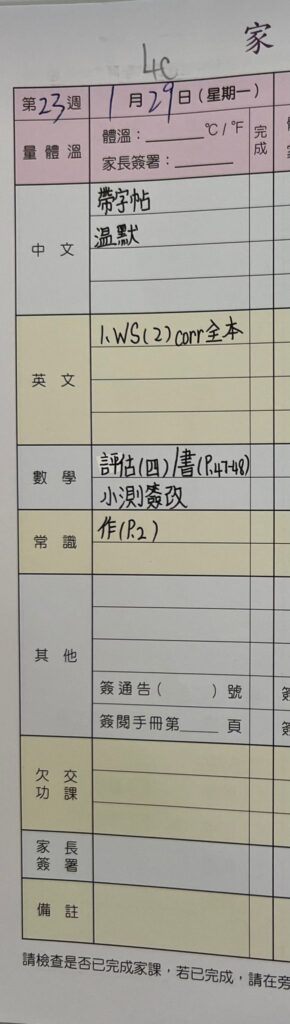 家
4C
第23週 1月29日(星期一)
量體溫 體溫：______ °C/°F 完成
家長簽署：______
中文 帶字帖
溫默
英文 1. WS(2) corr全本
數學 評估(四)/書(P.47-48)
小測簽改
常識 作(P.2)
其他
簽通告(　　)號
簽閱手冊第____頁
欠交功課
家長簽署
備註
請檢查是否已完成家課，若已完成，請在旁